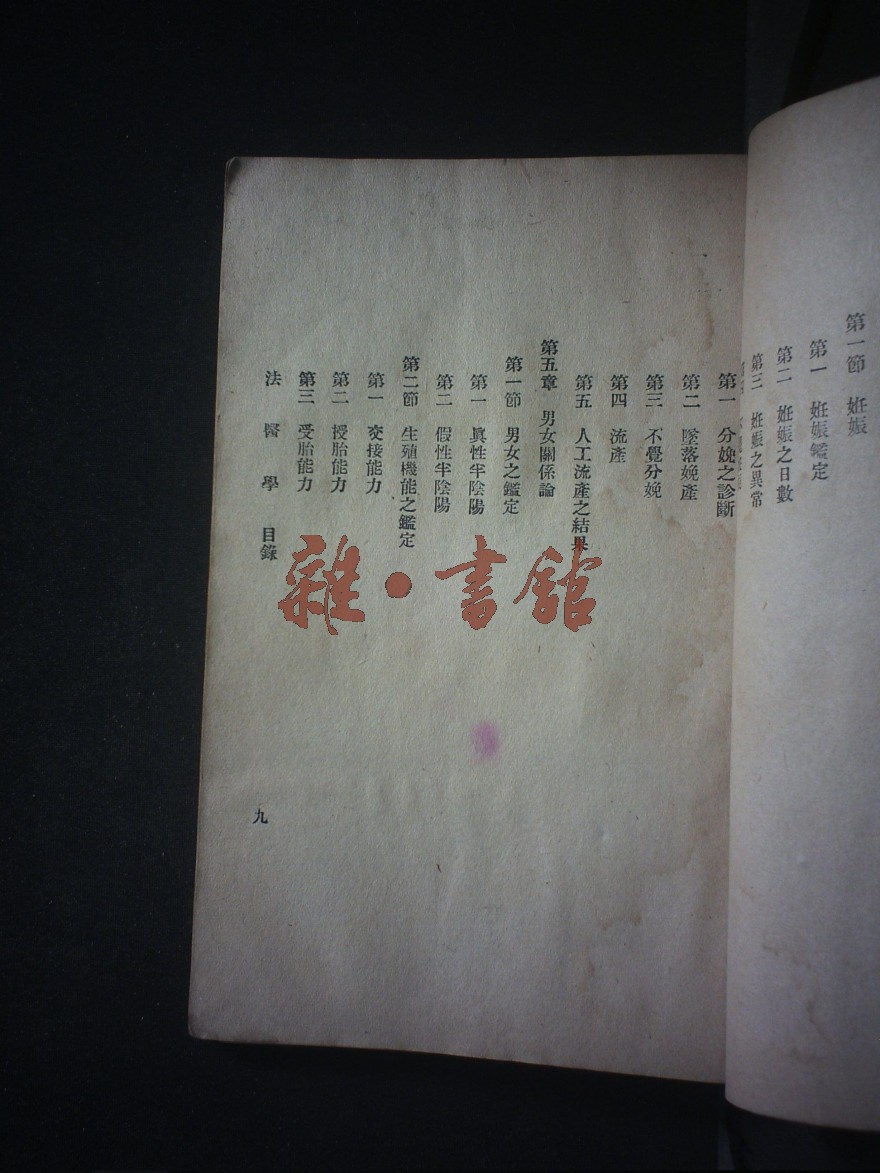 第一節 妊娠
第一 妊娠鑑定
第二 妊娠之日數
第三 妊娠之異常
第一 分娩之診斷
第二 墜落娩產
第三 不覺分娩
第四 流產
第五 人工流產之結果
第五章 男女關係論
第一節 男女之鑑定
第一 眞性半陰陽
第二 假性半陰陽
第二節 生殖機能之鑑定
第一 交接能力
第二 授胎能力
第三 受胎能力
法醫學 目錄
九
雜·書館